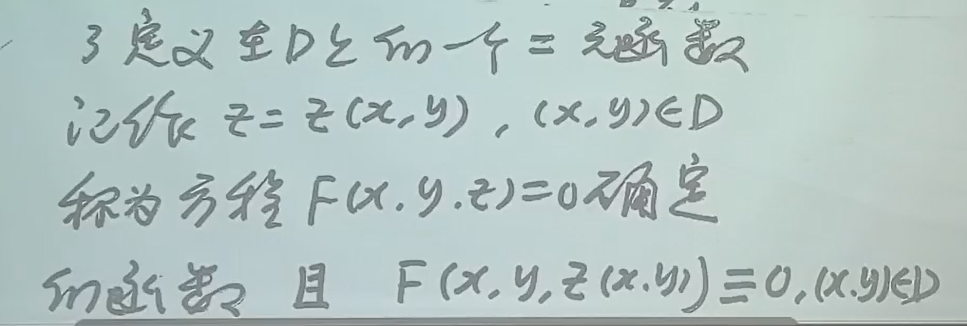 了定义在D上的一个二元函数
记作 z=z(x,y),(x,y)∈D
称为方程F(x.y.z)=0所确定
的函数 且 F(x,y,z(x.y))≡0,(x.y)∈D